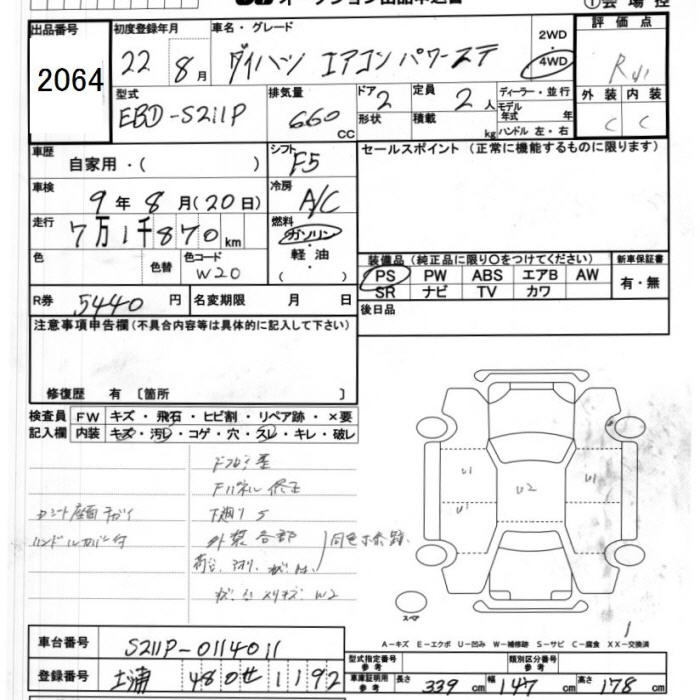 出品番号
2064
初度登録年月
22 8月
車名・グレード
ダイハツ エアコン パワーステ
2WD
4WD
①会場控
評価点
外装 内装
C C
型式
EBD-S211P
排気量
660 cc
ドア 2
形状
定員 2人
積載 kg
ディーラー・並行
モデル
年式 年
ハンドル 左・右
車歴
自家用・( )
シフト
F5
セールスポイント (正常に機能するものに限ります)
車検
9年8月(20日)
冷房
A/C
走行
7万1千870km
燃料
ガソリン
軽油
( )
色
色替
色コード
W20
装備品(純正品に限り〇をつけてください)
新車保証書
PS PW ABS エアB AW
SR ナビ TV カワ
有・無
R券
5440円
名変期限 月 日
後日品
注意事項申告欄(不具合内容等は具体的に記入して下さい)
修復歴 有 [箇所 ]
検査員
記入欄
FW キズ・飛石・ヒビ割・リペア跡・×要
内装 キズ・汚レ・コゲ・穴・スレ・キレ・破レ
Fパネル修正
下廻りS
外装各部
ハンドルカバー付
W2
U1
U1
U2
U1
スペア
A-キズ E-エクボ U-凹み W-補修跡 S-サビ C-腐食 XX-交換済
車台番号
S211P-0114011
登録番号
土浦 480せ1192
型式指定番号
類別区分番号
車庫証明用
参考
長さ 339cm
幅 147cm
高さ 178cm